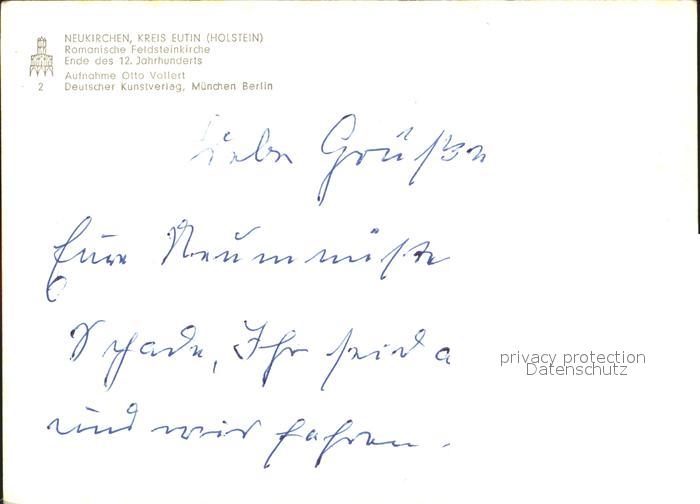 NEUKIRCHEN, KREIS EUTIN (HOLSTEIN)
Romanische Feldsteinkirche
Ende des 12. Jahrhunderts
Aufnahme Otto Vollert
2 Deutscher Kunstverlag, München Berlin
Liebe Grüße
Eure
Schade, Ihr seid
und wir fahren.
privacy protection
Datenschutz